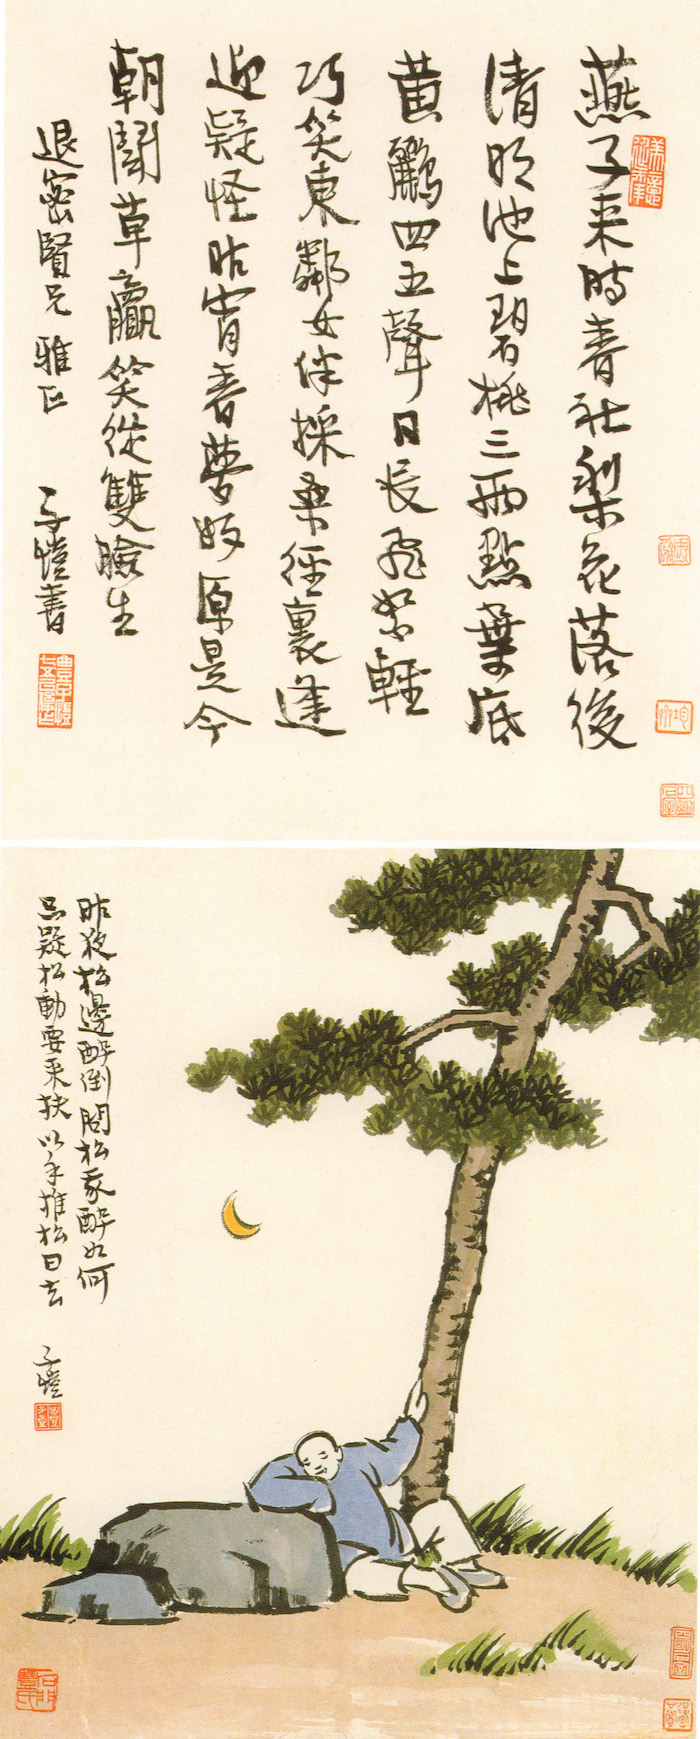 燕子来時春社梨花落後
清明池上碧桃三兩點葉底
黄鸝四五聲日長飛絮輕
巧笑東鄰女伴採桑徑裏逢
迎疑怪昨宵春夢好原是今
朝鬭草贏笑從雙臉生
退密賢兄雅正
子愷書
昨夜松邊醉倒問松我醉如何
只疑松動要来扶以手推松曰去
子愷